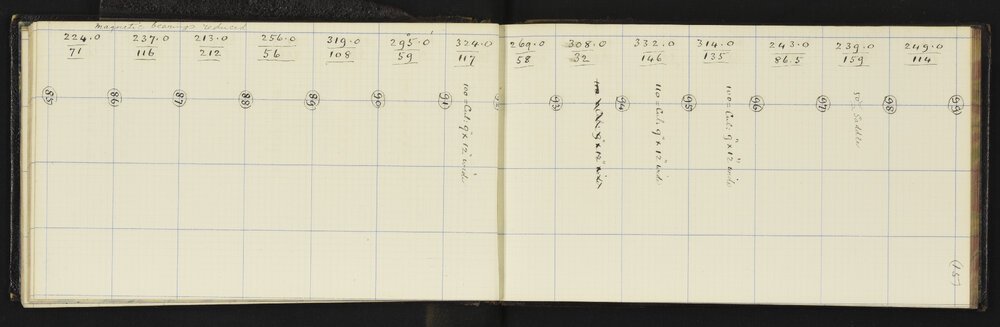 magnetic bearings reduced
224.0 237.0 213.0 256.0 319.0 295.0 324.0 269.0 308.0 332.0 314.0 243.0 239.0 249.0
71 116 212 56 108 59 117 58 32 146 135 86.5 159 114
85 86 87 88 89 90 91 93 94 95 96 97 98 99
110 = Cut. 9" x 12" wide
9" x 12" wide
110 = Cut. 9" x 12" wide
100 = Cut. 9" x 12" wide
50 = Saddle
(157)